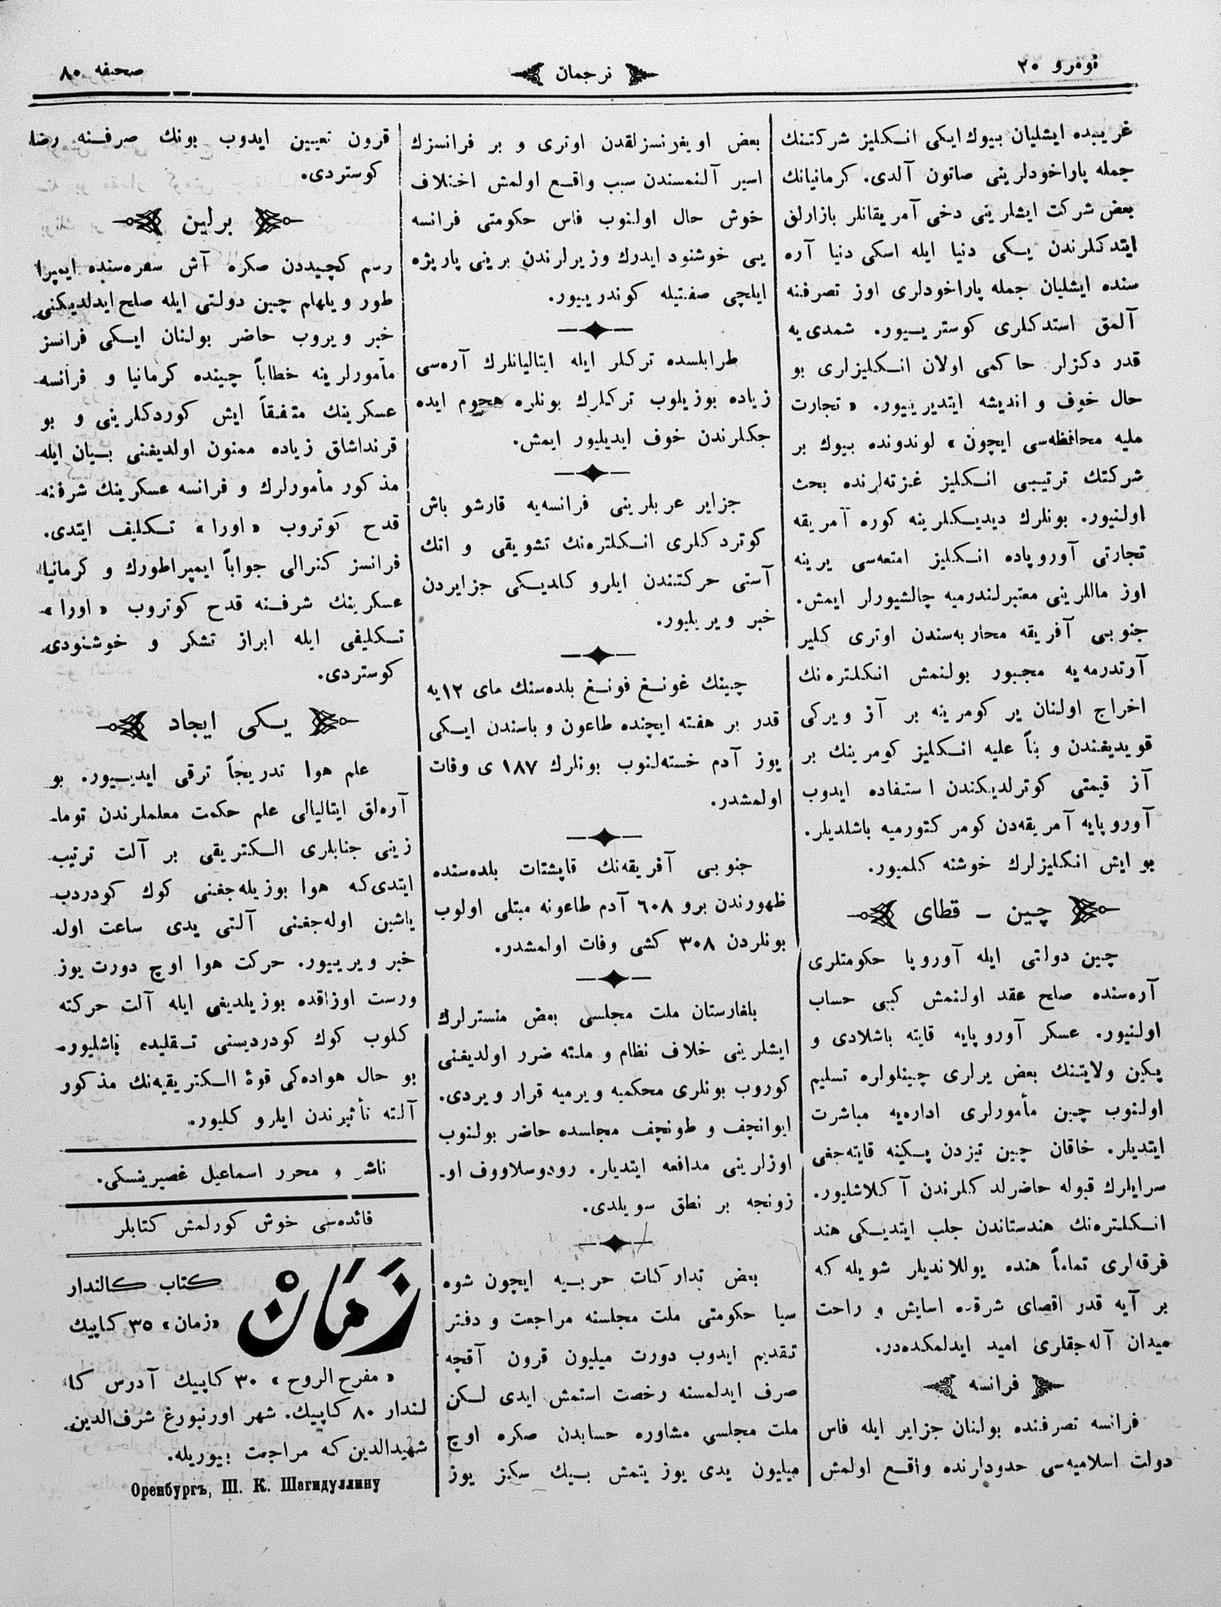 نومرو ۲۰
ترجمان
صحیفه ۸۰
غربیده ایشلیان بیوك ایكی انكلیز شركتینك
جمله پاراخودلرینی صاتون آلدی. كرمانیانك
بعض شركت ایشلرینی دخی آمریقانلر بازارلق
ایتدكلرندن یكی دنیا ایله اسكی دنیا آره
سنده ایشلیان جمله پاراخودلری اوز تصرفنه
آلمق استدكلری كوستریییور. شمدی یه
قدر دكزلر حاكمی اولان انكلیزلری بو
حال خوف و اندیشه ایتدیرییور. «تجارت
ملیه محافظه‌سی ایچون» لوندونده بیوك بر
شركتك ترتیبی انكلیز غزته‌لرنده بحث
اولنیور. بونلرك دیدیكلرینه كوره آمریقه
تجارتی آوروپاده انكلیز امتعه‌سی یرینه
اوز ماللرینی معتبرلندرمیه چالشیورلر ایمش.
جنوبی آفریقه محاربه‌سندن اوتری كلیر
آرتدرمه‌یه مجبور بولنمش انكلتره‌نك
اخراج اولنان یر كومرینه بر آز ویركی
قویدیغندن و بناً علیه انكلیز كومرینك بر
آز قیمتی كوترلدیكندن استفاده ایدوب
آوروپایه آمریقه‌دن كومر كتورمیه باشلدیلر.
بو ایش انكلیزلرك خوشنه كلمیور.
چین – قطای
چین دولتی ایله آوروپا حكومتلری
آره‌سنده صلح عقد اولنمش كبی حساب
اولنیور. عسكر آوروپایه قایته باشلادی و
پكین ولایتنك بعض یرلری چینلولره تسلیم
اولنوب چین مأمورلری اداره‌یه مباشرت
ایتدیلر. خاقان چین تیزدن پكینه قایته‌جغی
سرایلرك قبوله حاضرلدكلرندن آكلاشلیور.
انكلتره‌نك هندستاندن جلب ایتدیكی هند
فرقه‌لری تماماً هنده یوللاندیلر شویله كه
بر آیه قدر اقصای شرقده اسایش و راحت
میدان آله‌جقلری امید ایدلمكده‌در.
فرانسه
فرانسه تصرفنده بولنان جزایر ایله فاس
دولت اسلامیه‌سی حدودارنده واقع اولمش
بعض اویغرنسزلقدن اوتری و بر فرانسزك
اسیر آلنمسندن سبب واقع اولمش اختلاف
خوش حال اولنوب فاس حكومتی فرانسه
یی خوشنود ایدرك وزیرلرندن برینی پاریژه
ایلچی صفتیله كوندرییور.
طرابلسده تركلر ایله ایتالیانلرك آره‌سی
زیاده بوزیلوب تركلرك بونلره هجوم ایده
جكلرندن خوف ایدیلیور ایمش.
جزایر عربلرینی فرانسه‌یه قارشو باش
كوتردكلری انكلتره‌نك تشویقی و انك
آستی حركتندن ایلرو كلدیكی جزایردن
خبر ویریلیور.
چینك غونغ فونغ بلده‌سنك مای ۱۲یه
قدر بر هفته ایچنده طاعون و باسندن ایكی
یوز آدم خسته‌لنوب بونلرك ۱۸۷ ی وفات
اولمشدر.
جنوبی آفریقه‌نك قاپشتات بلده‌سنده
ظهورندن برو ۶۰۸ آدم طاعونه مبتلی اولوب
بونلردن ۳۰۸ كشی وفات اولمشدر.
بلغارستان ملت مجلسی بعض منسترلرك
ایشلرینی خلاف نظام و ملته ضرر اولدیغنی
كوروب بونلری محكمیه ویرمیه قرار ویردی.
ایوانچف و طونچف مجلسده حاضر بولنوب
اوزلرینی مدافعه ایتدیلر. رودوسلاووف او‍
زونجه بر نطق سویلدی.
بعض تداركات حربیه ایچون شوه
سیا حكومتی ملت مجلسنه مراجعت و دفتر
تقدیم ایدوب دورت میلیون قرون آقچه
صرف ایدلمسنه رخصت استمش ایدی لكن
ملت مجلسی مشاوره حسابدن صكره اوچ
میلیون یدی یوز یتمش بیك سكیز یوز
قرون تعیین ایدوب بونك صرفنه رضا
كوستردی.
برلین
رسم كچیددن صكره آش سفره‌سنده ایمپرا
طور ویلهلم چین دولتی ایله صلح ایدلدیكنی
خبر ویروب حاضر بولنان ایكی فرانسز
مأمورلرینه خطاباً چینده كرمانیا و فرانسه
عسكرینك متفقاً ایش كوردكلرینی و بو
قرنداشلق زیاده ممنون اولدیغنی بیان ایله
مذكور مأمورلرك و فرانسه عسكرینك شرفنه
قدح كوتروب «اورا» تكلیف ایتدی.
فرانسز كنرالی جواباً ایمپراطورك و كرمانیا
عسكرینك شرفنه قدح كوتروب «اورا»
تكلیفی ایله ابراز تشكر و خوشنودی
كوستردی.
یكی ایجاد
علم هوا تدریجاً ترقی ایدییور. بو
آره‌لق ایتالیالی علم حكمت معلملرندن توما‍
زینی جنابلری الكتریقی بر آلت ترتیب
ایتدی‌كه هوا بوزیله‌جغنی كوك كودردب
یاشین اوله‌جغنی آلتی یدی ساعت اول
خبر ویرییور. حركت هوا اوچ دورت یوز
ورست اوزاقده بوزیلدیغی ایله آلت حركته
كلوب كوك كودردیسنی تقلیده باشلیور.
بو حال هواده‌كی قوۀ الكتریقیه‌نك مذكور
آلته تأثیرندن ایلرو كلیور.
ناشر و محرر اسماعیل غصپرینسكی.
فائده‌سی خوش كورلمش كتابلر
زمان
كتاب كالندار
«زمان» ۳۵ كاپیك
«مفرح الروح» ۳۰ كاپیك آدرس كا
لندار ۸۰ كاپیك. شهر اورنبورغ شرف‌الدین
شهیدالدین‌كه مراجعت بیوریله.
Оренбургъ, Ш. К. Шагидуллину